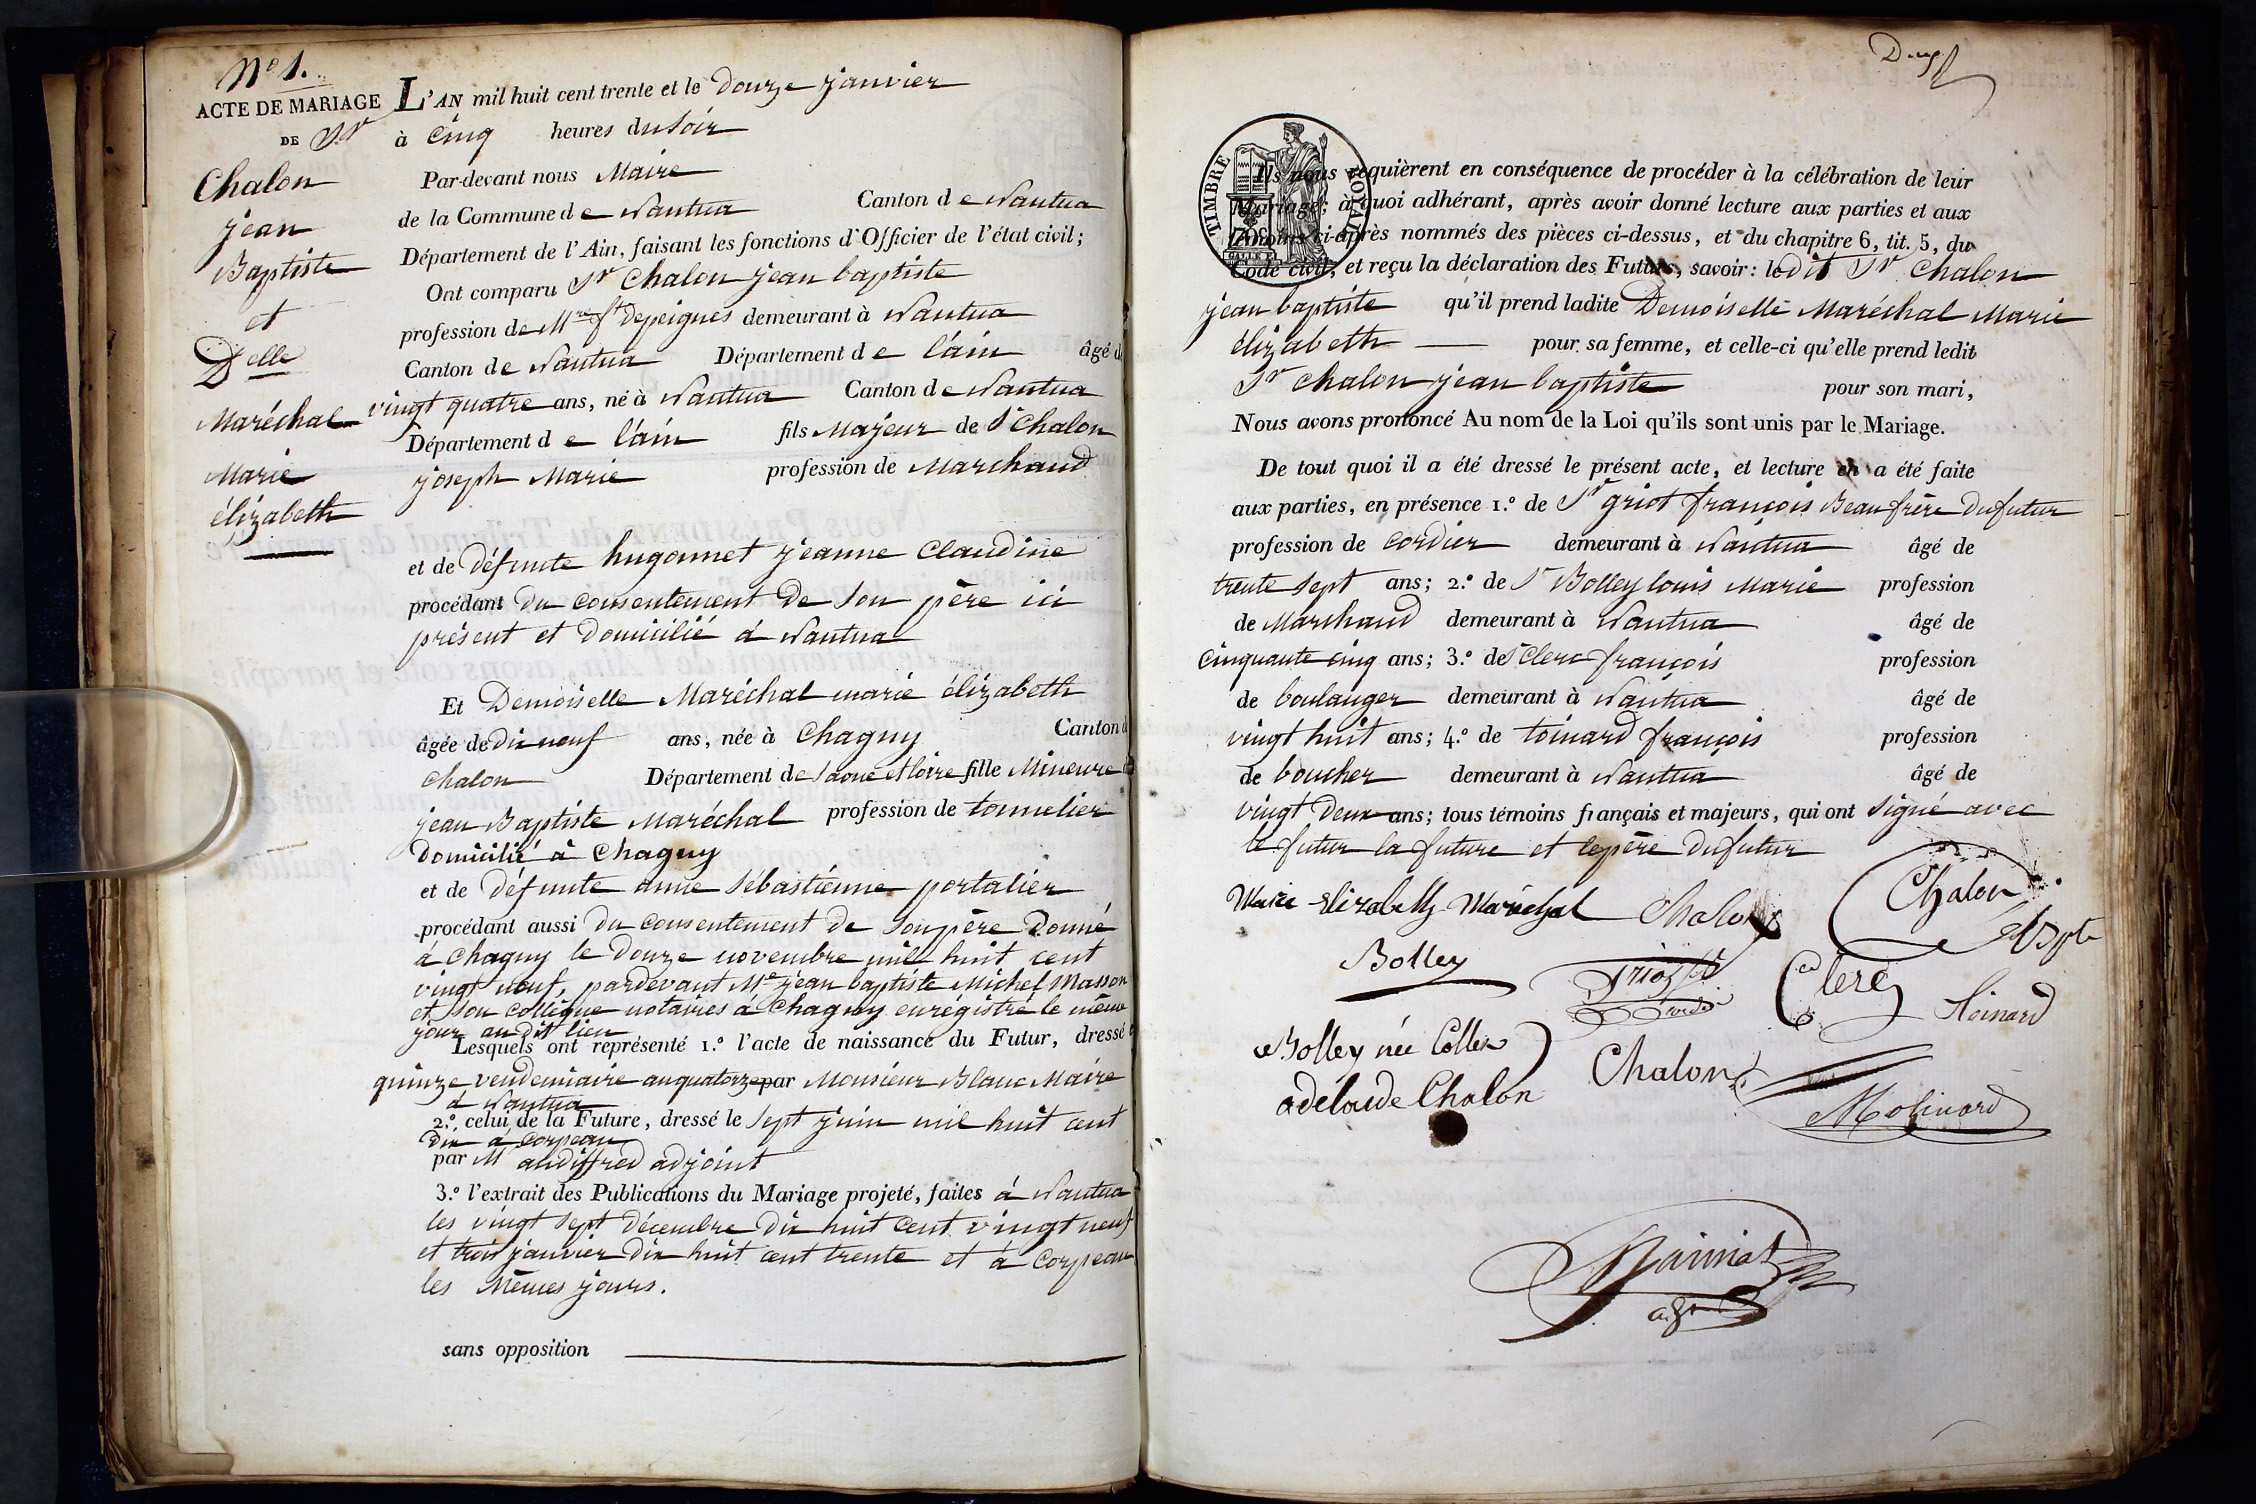 N° 1.
ACTE DE MARIAGE
DE Sr
Chalon
jean
Baptiste
et
Delle
Maréchal
Marie
élizabeth
L'AN mil huit cent trente et le Douze janvier
à Cinq heures du Soir
Par-devant nous Maire
de la Commune de Nantua Canton de Nantua
Département de l'Ain, faisant les fonctions d'Officier de l'état civil;
Ont comparu Sr Chalon jean baptiste
profession de Mre ft depeignes demeurant à Nantua
Canton de Nantua Département de l'ain âgé d
vingt quatre ans, né à Nantua Canton de Nantua
Département de l'ain fils Majeur de Sr Chalon
joseph Marie profession de Marchand
et de défunte hugonnet jeanne Claudine
procédant du consentement de Son père ici
présent et Domicilié à Nantua
Et Demoiselle Maréchal marie élizabeth
âgée de Dix neuf ans, née à Chagny Canton d
Chalon Département de Saone et loire fille Mineure
jean Baptiste Maréchal profession de tonnelier
Domicilié à Chagny
et de Défunte anne Sébastienne portalier
procédant aussi du consentement de Son père Donné
à Chagny le Douze novembre mil huit cent
vingt neuf, pardevant Me jean baptiste Michel Masson
et son collègue notaires à Chagny enrégistré le même
jour au dit lieu
Lesquels ont représenté 1.º l'acte de naissance du Futur, dressé
quinze vendemiaire an quatorze par Monsieur Blanc Maire
à Nantua
2.º celui de la Future, dressé le Sept juin mil huit cent
Dix à Corpeau
par Mr audiffred adjoint
3.º l'extrait des Publications du Mariage projeté, faites à Nantua
les vingt Sept Décembre Dix huit cent vingt neuf
et trois janvier Dix huit cent trente et à Corpeau
les Mêmes jours.
sans opposition
TIMBRE ROYAL
Ils nous requièrent en conséquence de procéder à la célébration de leur
Mariage; à quoi adhérant, après avoir donné lecture aux parties et aux
témoins ci-après nommés des pièces ci-dessus, et du chapitre 6, tit. 5, du
Code civil, et reçu la déclaration des Futurs, savoir: ledit Sr Chalon
jean baptiste qu'il prend ladite Demoiselle Maréchal Marie
élizabeth pour sa femme, et celle-ci qu'elle prend ledit
Sr Chalon jean baptiste pour son mari,
Nous avons prononcé Au nom de la Loi qu'ils sont unis par le Mariage.
De tout quoi il a été dressé le présent acte, et lecture en a été faite
aux parties, en présence 1.º de Sr griot françois Beau frère du futur
profession de Cordier demeurant à Nantua âgé de
trente Sept ans; 2.º de Sr Bolley louis Marie profession
de Marchand demeurant à Nantua âgé de
Cinquante cinq ans; 3.º de Sr Clerc françois profession
de boulanger demeurant à Nantua âgé de
vingt huit ans; 4.º de toinard françois profession
de boucher demeurant à Nantua âgé de
vingt Deux ans; tous témoins français et majeurs, qui ont Signé avec
le futur la future et le père du futur
Marie Elizabeth Maréchal Chalon Chalon
Bolley griot Clerc toinard
Bolley née Collex Chalon
adélaïde Chalon Molinard